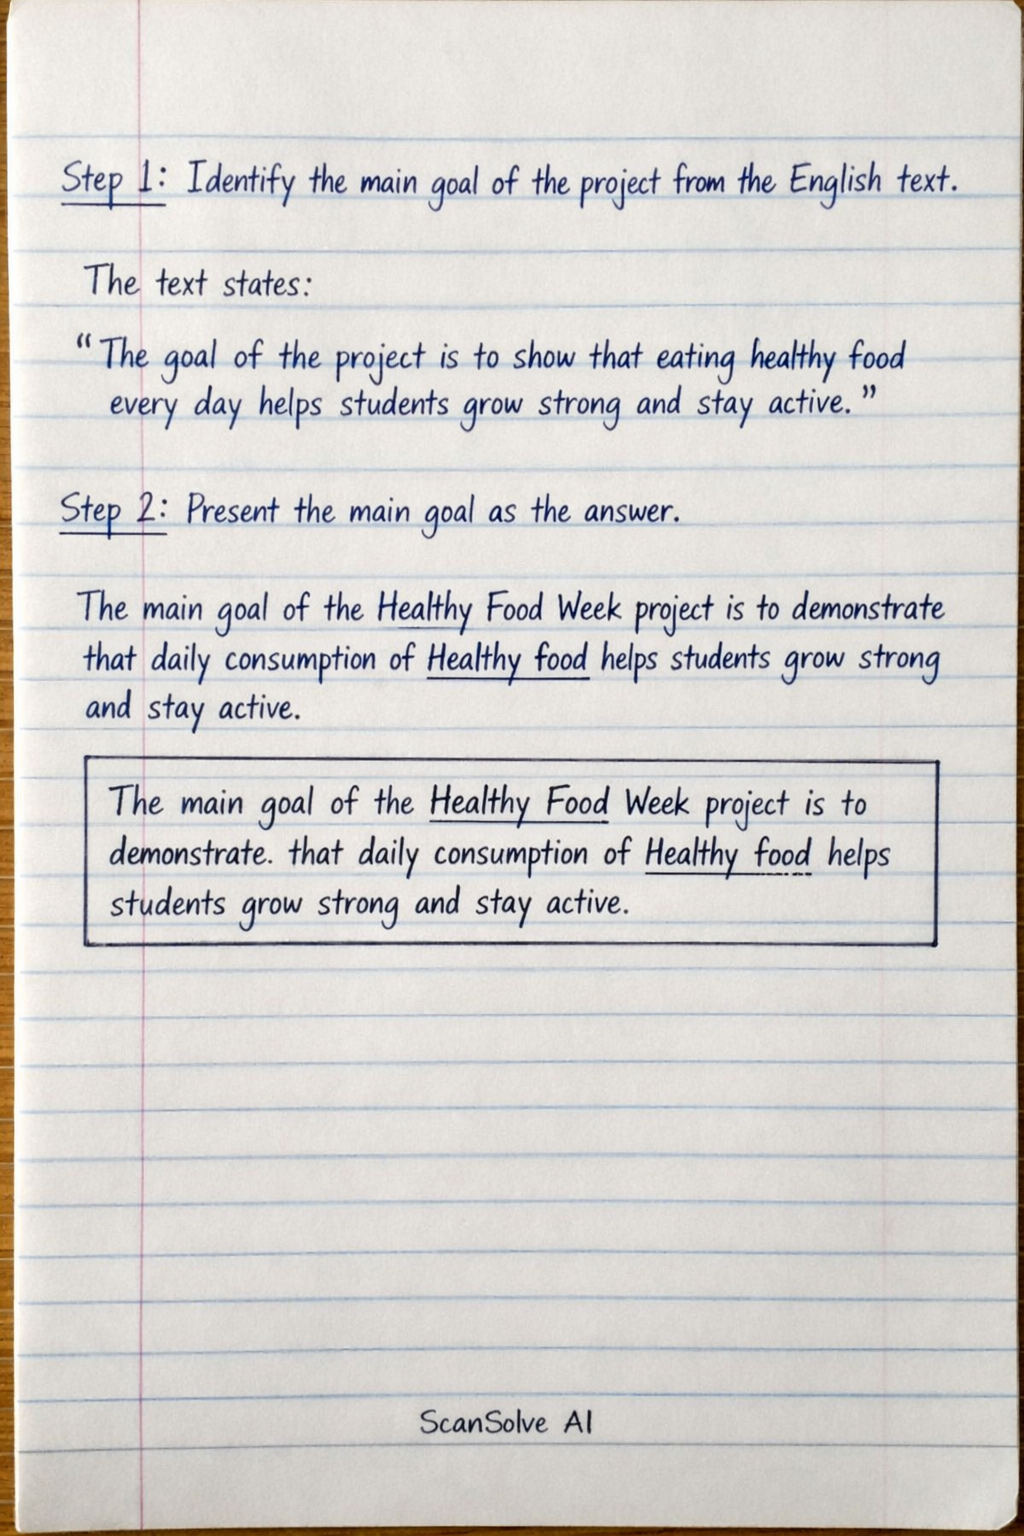 Step 1: Identify the main goal of the project from the English text.
The text states:
“The goal of the project is to show that eating healthy food
every day helps students grow strong and stay active.”
Step 2: Present the main goal as the answer.
The main goal of the Healthy Food Week project is to demonstrate
that daily consumption of Healthy food helps students grow strong
and stay active.
The main goal of the Healthy Food Week project is to
demonstrate. that daily consumption of Healthy food helps
students grow strong and stay active.
ScanSolve AI